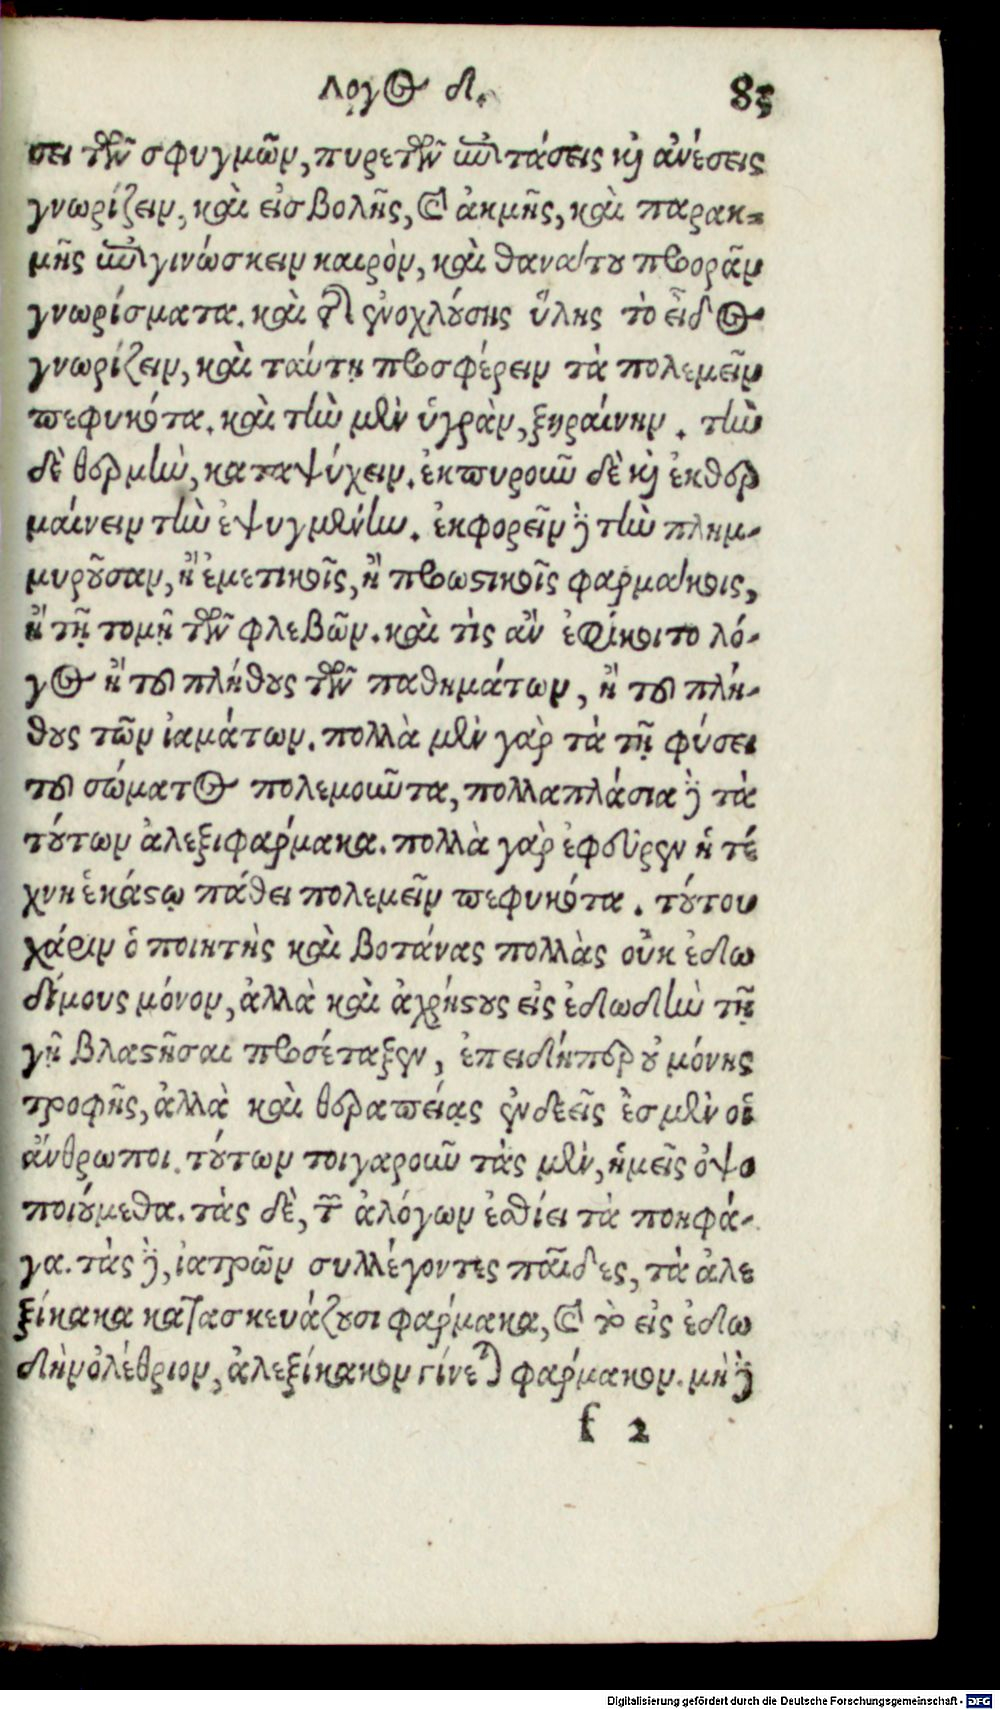 λογος δ. 83
σει τῶν σφυγμῶν, πυρετῶν ἐπιτάσεις καὶ ἀνέσεις
γνωρίζειν, καὶ εἰσβολῆς, καὶ ἀκμῆς, καὶ παρακ-
μῆς ἐπιγινώσκειν καιρὸν, καὶ θανάτου προορᾶν
γνωρίσματα. καὶ τῆς ἐνοχλούσης ὕλης τὸ εἶδος
γνωρίζειν, καὶ ταύτῃ προσφέρειν τὰ πολεμεῖν
πεφυκότα. καὶ τὴν μὲν ὑγρὰν, ξηραίνην. τὴν
δὲ θερμὴν, καταψύχειν. ἐκπυροῦν δὲ καὶ ἐκθερ
μαίνειν τὴν ἐψυγμένην. ἐκφορεῖν δὲ τὴν πλημ-
μυροῦσαν, ἢ ἐμετικοῖς, ἢ προωστικοῖς φαρμάκοις,
ἢ τῇ τομῇ τῶν φλεβῶν. καὶ τίς ἂν ἐφίκοιτο λό-
γος ἢ τοῦ πλήθους τῶν παθημάτων, ἢ τοῦ πλή-
θους τῶν ἰαμάτων. πολλὰ μὲν γὰρ τὰ τῇ φύσει
τοῦ σώματος πολεμοῦντα, πολλαπλάσια δὲ τὰ
τούτων ἀλεξιφάρμακα. πολλὰ γὰρ ἐφεῦρεν ἡ τέ
χνη ἑκάστῳ πάθει πολεμεῖν πεφυκότα. τούτου
χάριν ὁ ποιητὴς καὶ βοτάνας πολλὰς οὐκ ἐδω
δίμους μόνον, ἀλλὰ καὶ ἀχρήστους εἰς ἐδωδὴν τῇ
γῇ βλαστῆσαι προσέταξεν, ἐπειδήπερ οὐ μόνης
τροφῆς, ἀλλὰ καὶ θεραπείας ἐνδεεῖς ἐσμὲν οἱ
ἄνθρωποι. τούτων τοιγαροῦν τὰς μὲν, ἡμεῖς ὀψο
ποιούμεθα. τὰς δὲ, τῶν ἀλόγων ἐσθίει τὰ ποηφά-
γα. τὰς δὲ, ἰατρῶν συλλέγοντες παῖδες, τὰ ἀλε
ξίκακα κατασκευάζουσι φάρμακα, καὶ τὸ εἰς ἐδω
δὴν ὀλέθριον, ἀλεξίκακον γίνεται φάρμακον. μὴ δὲ
f 2
Digitalisierung gefördert durch die Deutsche Forschungsgemeinschaft - DFG